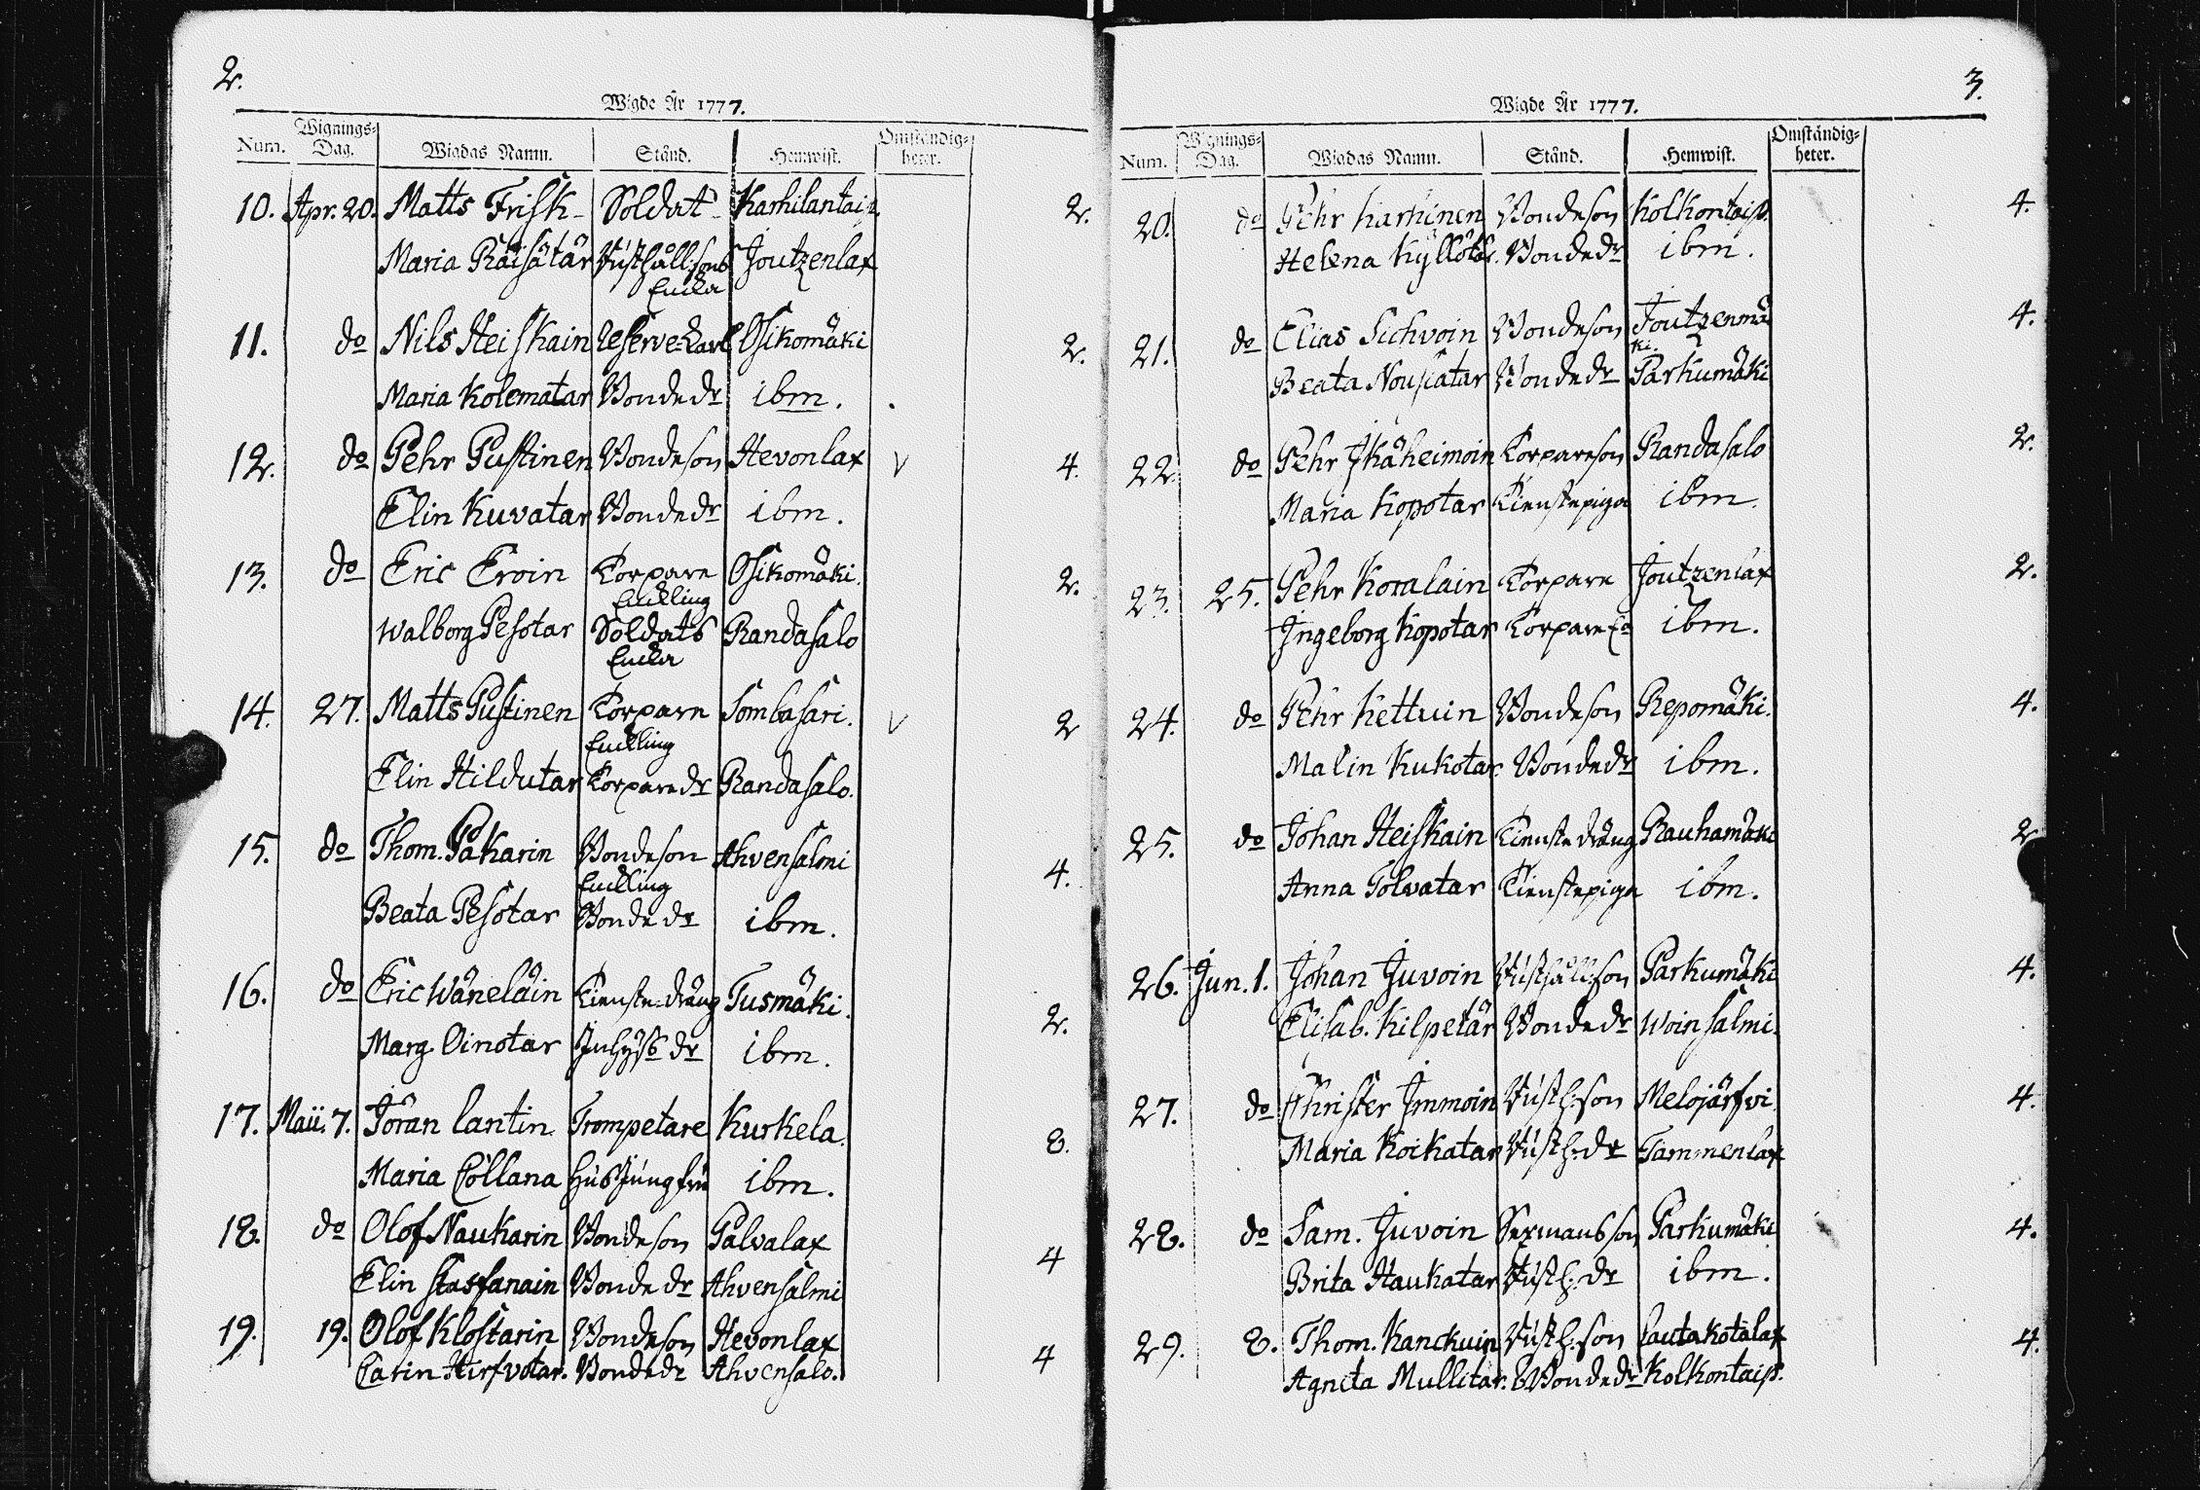 2.
Wigde År 1777.
Num. Wignings-Dag. Wigdas Namn. Stånd. Hemwist. Omständig-heter.
10. Apr. 20. Matts Frisk Soldat Karhilantais. 2.
Maria Räisätär Rusthåll:sons Joutzenlax
Enka
11. do Nils Heiskain Reserve-karl Osikomäki 2.
Maria Kolematar Bondedr ibm.
12. do Pehr Pustinen Bondeson Hevonlax V 4.
Elin Kuvatar Bondedr ibm.
13. do Eric Eroin Torpare Osikomäki. 2.
Enckling
Walborg Pesotar Soldats Randasalo
Encka
14. 27. Matts Pustinen Torpare Sombasari. V 2
Enckling
Elin Hildutar Torparedr Randasalo.
15. do Thom. Pakarin Bondeson Ahvensalmi 4.
Enckling
Beata Pesotar Bondedr ibm.
16. do Eric Wäneläin Tienste-dräng Tusmäki. 2.
Marg. Oinotar Inhyss dr ibm.
17. Maii. 7. Jöran Lantin Trompetare Kurkela. 8.
Maria Cöllana Husjungfru ibm.
18. do Olof Naukarin Bondeson Palvalax 4
Elin Staffanain Bondedr Ahvensalmi
19. 19. Olof Klostarin Bondeson Hevonlax 4
Carin Hirfvotar. Bondedr Ahvensalo.
3.
Wigde År 1777.
Num. Wignings-Dag. Wigdas Namn. Stånd. Hemwist. Omständig-heter.
20. do Pehr Karhinen Bondeson Kolkontaip. 4.
Helena Kyllötär. Bondedr ibm.
21. do Elias Sichvoin Bondeson Joutzenmä 4.
ki.
Beata Nousiatar Bondedr Parkumäki
22. do Pehr Ikäheimoin Torpareson Randasalo 2.
Maria Kopotar Tienstepiga ibm.
23. 25. Pehr Koralain Torpare Joutzenlax 2.
Ingeborg Kopotar Torpare Ea ibm.
24. do Pehr Kettuin Bondeson Repomäki. 4.
Malin Kukotar Bondedr ibm.
25. do Johan Heiskain Tienstedräng Rauhamäki 2
Anna Tolvatar Tienstepiga ibm.
26. Jun. 1. Johan Juvoin Rusthåll:son Parkumäki 4.
Elisab. Kilpetär Bondedr Woinsalmi.
27. do Christer Immoin Rusth:son Melojärfvi 4.
Maria Koikatar Rusth:dr Tammenlax
28. do Sam. Juvoin Sexmansson Parkumäki 4.
Brita Haukatar Rusth:dr ibm.
29. 8. Thom. Kanckuin Rusth:son Lautakotalax 4.
Agnita Mullitar. Bondedr Kolkontaip.